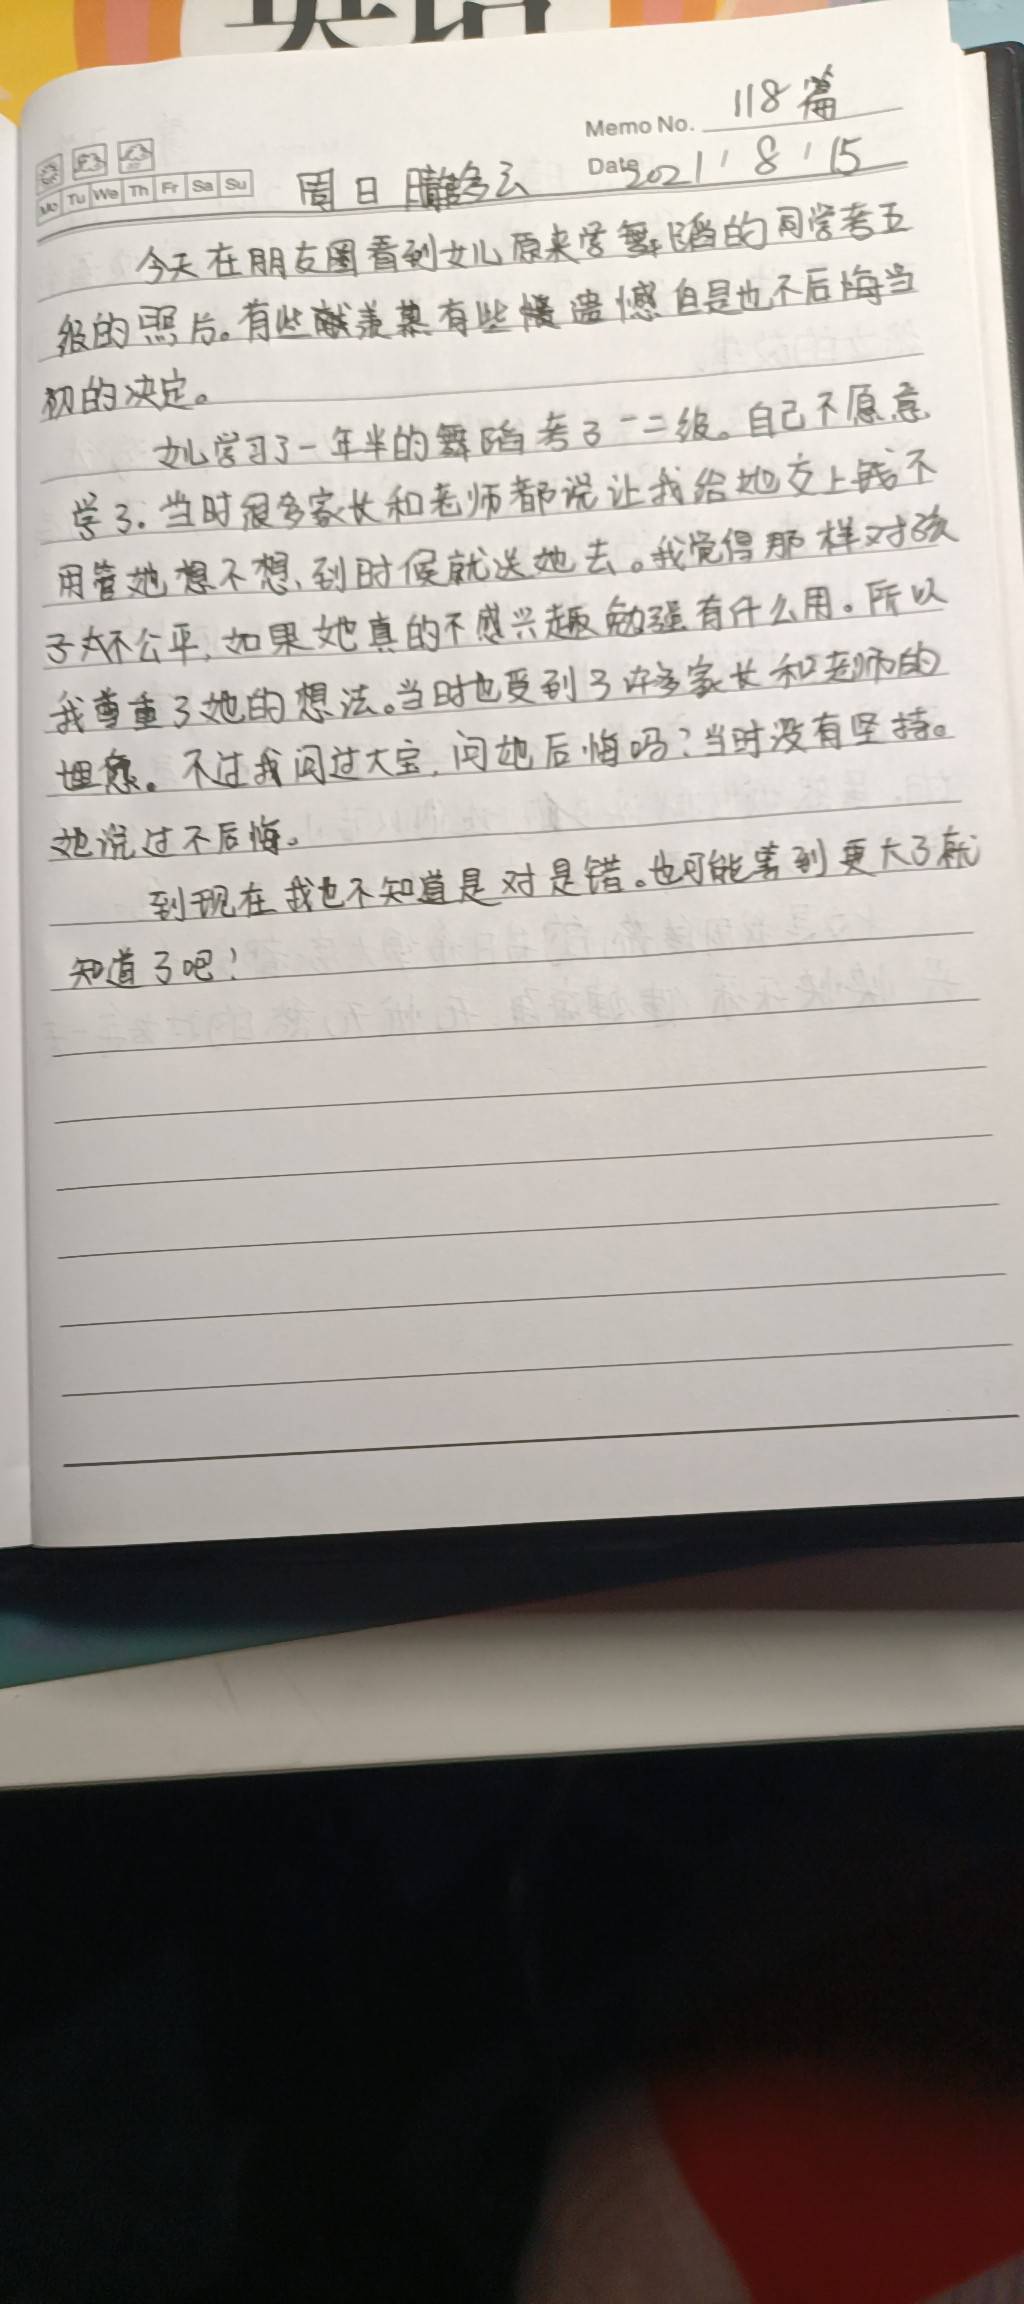 英语
Memo No. 118篇
Date 2021 / 8 / 15
Mo Tu We Th Fr Sa Su
周日 晴转多云
今天在朋友圈看到女儿原来学舞蹈的同学考五
级的照片。有些羡慕有些遗憾自是也不后悔当
初的决定。
女儿学习了一年半的舞蹈考了一二级。自己不愿意
学了.当时很多家长和老师都说让我给她交上钱不
用管她想不想、到时候就送她去。我觉得那样对孩
子不公平,如果她真的不感兴趣勉强有什么用。所以
我尊重了她的想法。当时也受到了许多家长和老师的
埋怨。不过我问过大宝,问她后悔吗?当时没有坚持。
她说过不后悔。
到现在我也不知道是对是错。也可能等到更大了就
知道了吧!